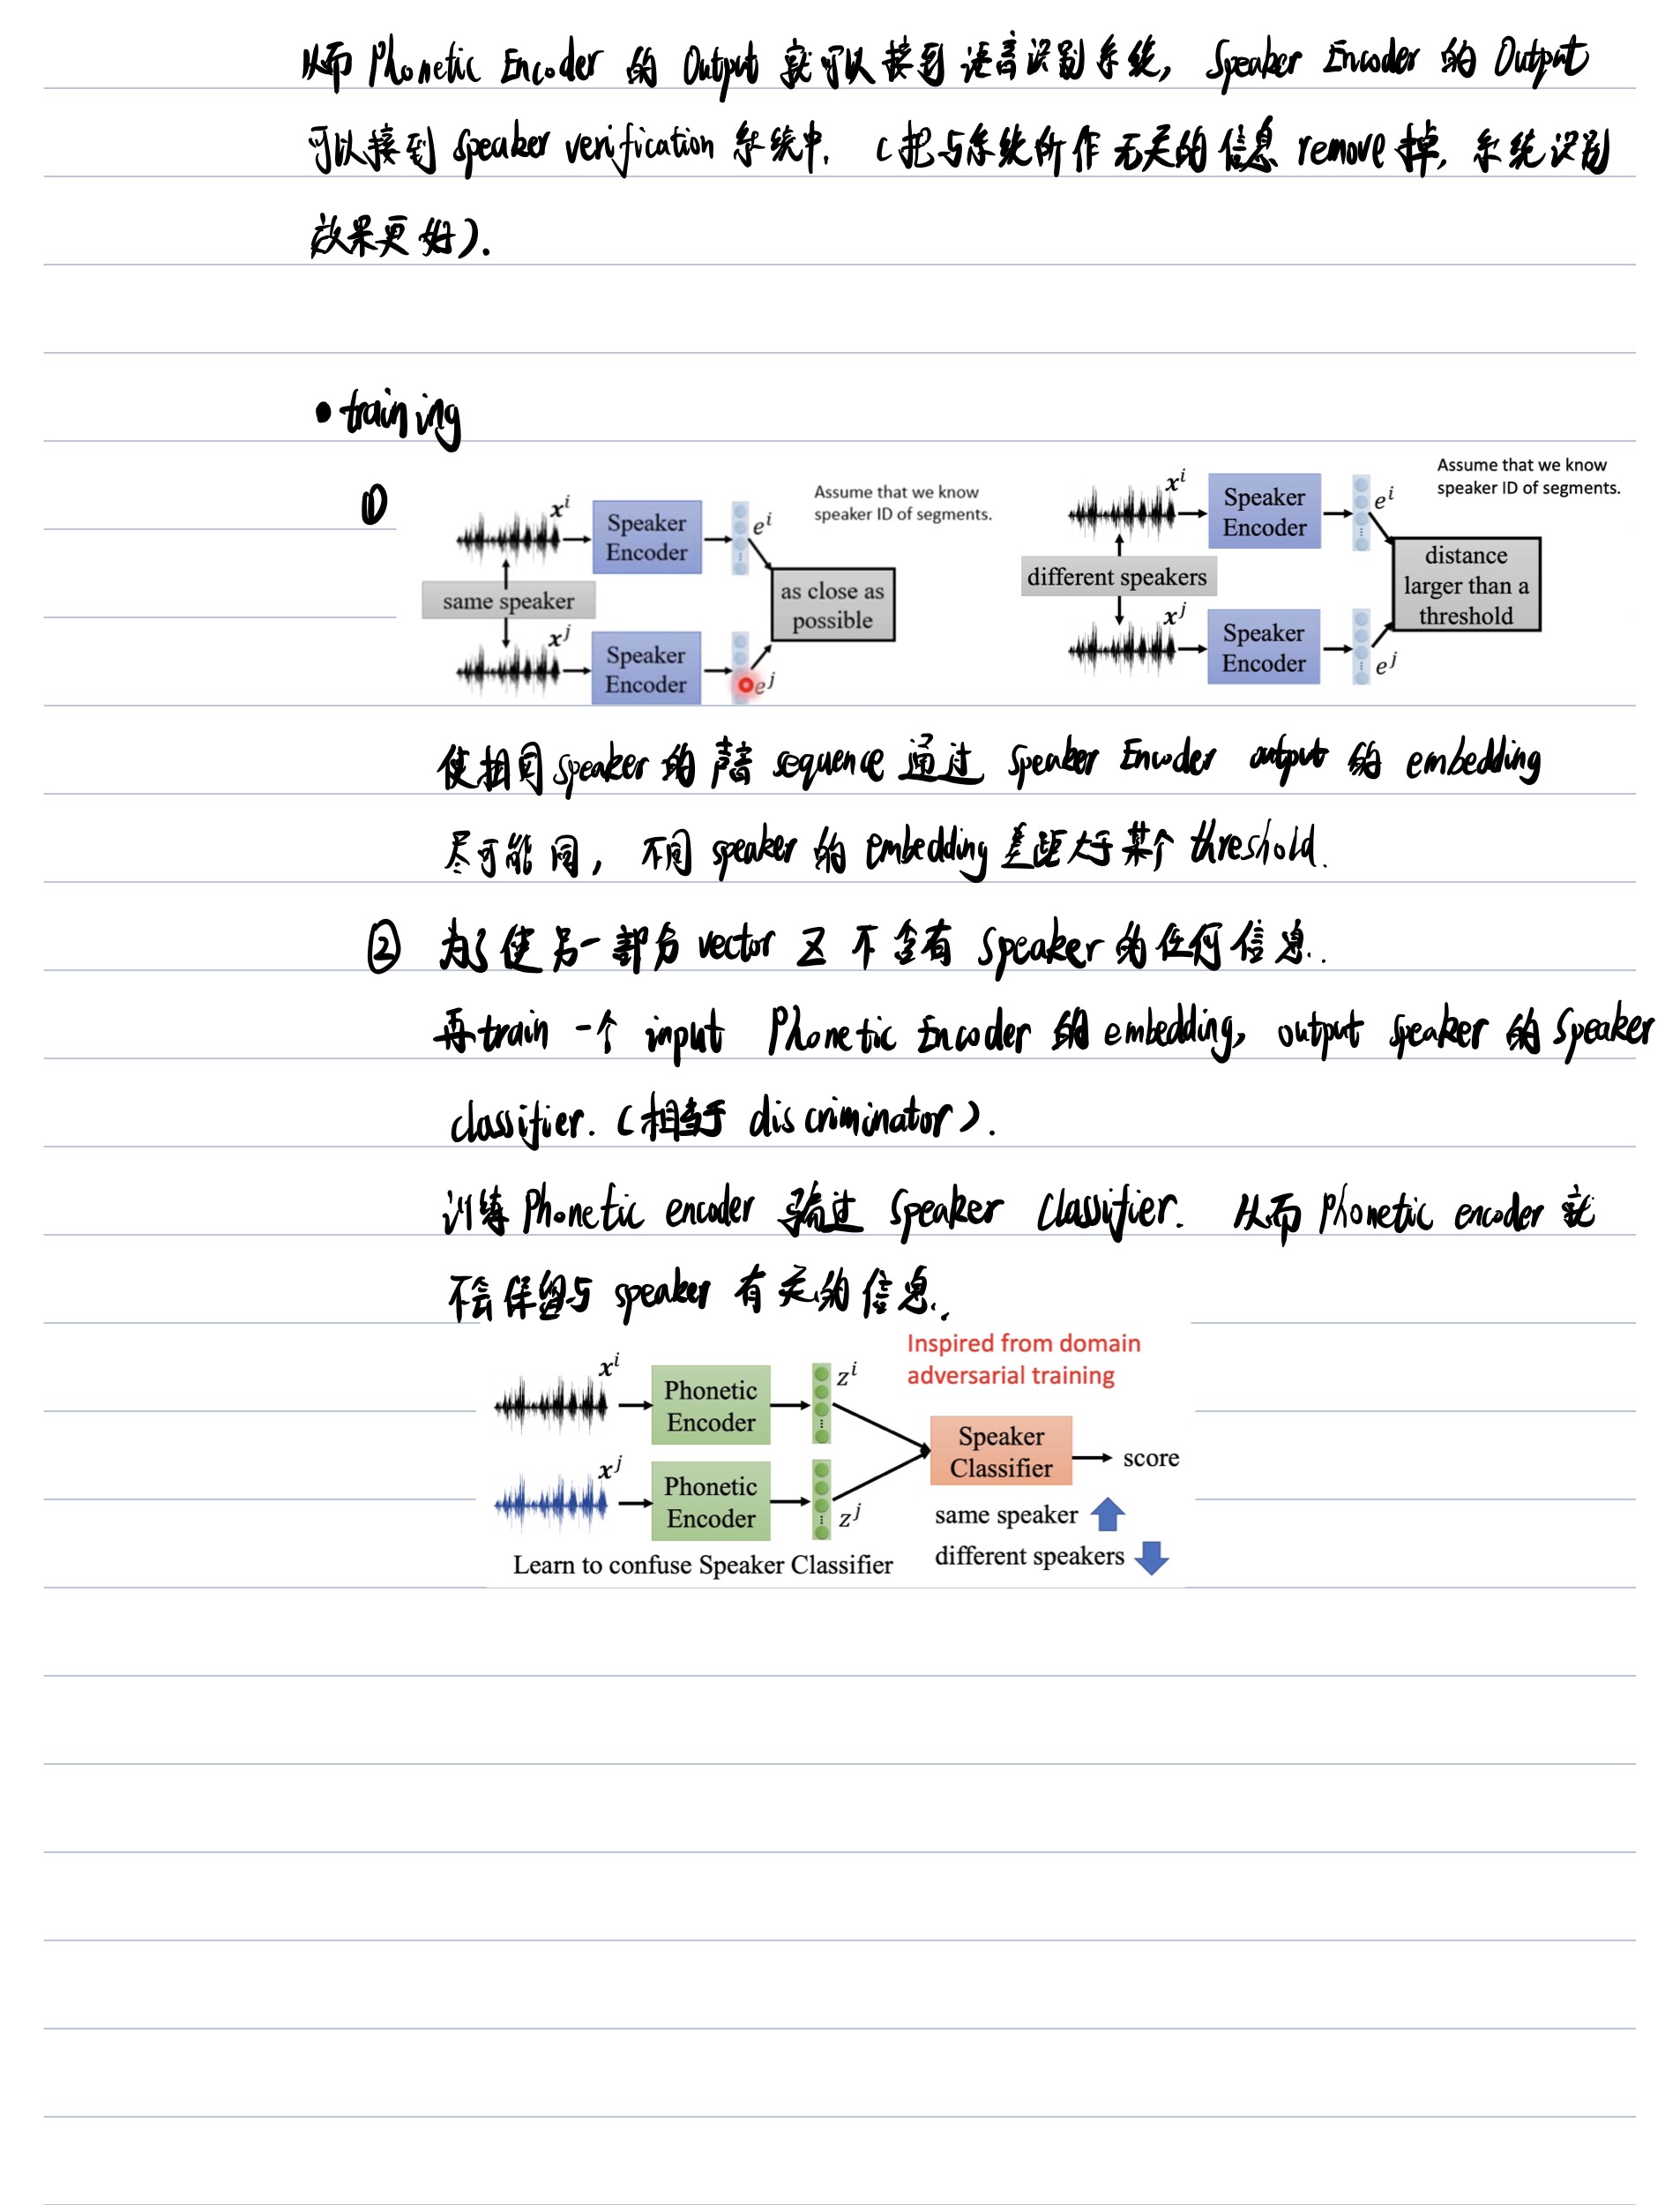 从而 Phonetic Encoder 的 Output 就可以接到语音识别系统, Speaker Encoder 的 Output
可以接到 speaker verification 系统中. (把与系统所作无关的信息 remove 掉, 系统识别
效果更好).
• training
①
Assume that we know
speaker ID of segments.
xⁱ
Speaker
Encoder
eⁱ
same speaker
as close as
possible
xʲ
Speaker
Encoder
eʲ
Assume that we know
speaker ID of segments.
xⁱ
Speaker
Encoder
eⁱ
different speakers
distance
larger than a
threshold
xʲ
Speaker
Encoder
eʲ
使相同 speaker 的声音 sequence 通过 Speaker Encoder output 的 embedding
尽可能同, 不同 speaker 的 embedding 差距大于某个 threshold.
② 为了使另一部分 vector Z 不含有 Speaker 的任何信息.
再 train 一个 input Phonetic Encoder 的 embedding, output speaker 的 Speaker
classifier. (相当于 discriminator).
训练 Phonetic encoder 骗过 Speaker Classifier. 从而 Phonetic encoder 就
不会保留与 speaker 有关的信息.
Inspired from domain
adversarial training
xⁱ
Phonetic
Encoder
zⁱ
Speaker
Classifier
score
xʲ
Phonetic
Encoder
zʲ
same speaker
different speakers
Learn to confuse Speaker Classifier